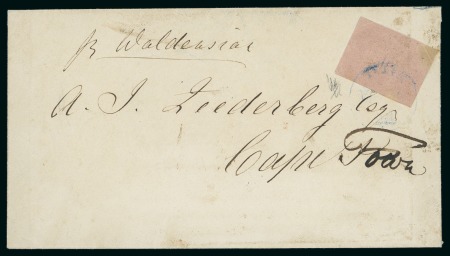 pr Waldensian
A. J. Leederberg Esqr
Cape Town